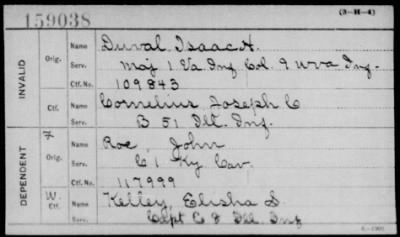 159038
(3-H-4)
INVALID
Orig.
Name Duval, Isaac H.
Serv. Maj 1 Va Inf Col. 9 W Va Inf.
Ctf. No. 109843
Ctf.
Name Cornelius Joseph C
Serv. B 51 Ill. Inf.
DEPENDENT
F
Orig.
Name Roe, John
Serv. C 1 Ky Cav.
Ctf. No. 117999
W.
Ctf.
Name Kelley, Elisha S
Serv. Capt C 8 Ill Inf